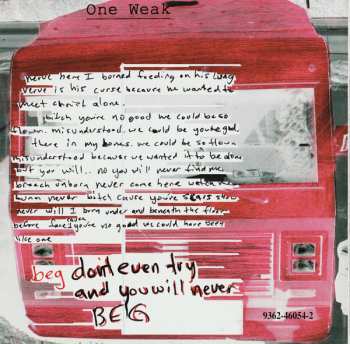 One Weak
nerve here I borned feeding on his
nerve is his curse because he wanted to
meet christ alone.
bitch you're no good we could be so
down. misunderstood. we could be
there in my bones. we could be so down
misunderstood because we wanted it to be done
but you will.. no you will never find me
breach unborn never come here
never bitch cause you're
never will I being under and beneath the floor
before you're no good we could have been
else one
beg don't even try
and you will never
BEG
9362-46054-2